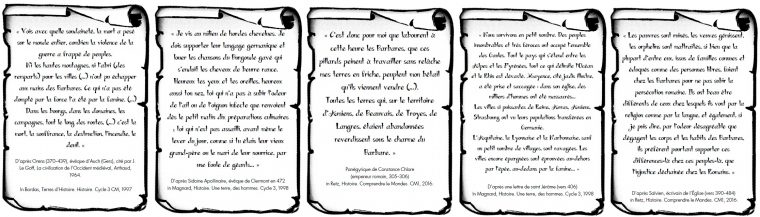 « Vois avec quelle soudaineté, la mort a pesé
sur le monde entier, combien la violence de la
guerre a frappé de peuples.
Ni les hautes montagnes, si l'abri (des
remparts) pour les villes (…) n'ont pu échapper
aux mains des Barbares. Ce qui n'a pas été
dompté par la force l'a été par la famine. (…)
Dans les bourgs, dans les domaines, les
campagnes, tout le long des routes, (…) c'est la
mort, la souffrance, la destruction, l'incendie, le
deuil. »
D'après Oriens (370-439), évêque d'Auch (Gers), cité par J.
Le Goff, La civilisation de l'Occident médiéval, Arthaud,
1964.
In Bordas, Terres d'Histoire. Histoire. Cycle 3 CM, 1997
« Je vis au milieu de hordes chevelues. Je
dois supporter leur langage germanique et
louer les chansons du Burgonde gavé qui
s'enduit les cheveux de beurre rance.
Heureux tes yeux et tes oreilles, heureux
aussi ton nez, toi qui n'a pas à subir l'odeur
de l'ail ou de l'oignon infecte que renvoient
dès le petit matin dix préparations culinaires
, toi qui n'est pas assailli, avant même le
lever du jour, comme si tu étais leur vieux
grand-père ou le mari de leur nourrice, par
une foule de géants… »
D'après Sidoine Apollinaire, évêque de Clermont en 472
in Magnard, Histoire. Une terre, des hommes. Cycle 3, 1998
« C'est donc pour moi que labourent à
cette heure les Barbares, que ces
pillards peinent à travailler sans relâche
mes terres en friche, peuplent mon bétail
qu'ils viennent vendre (…).
Toutes les terres qui, sur le territoire
d'Amiens, de Beauvais, de Troyes, de
Langres, étaient abandonnées
reverdissent sous la charrue du
Barbare. »
Panégyrique de Constance Chlore
(empereur romain, 305-306)
in Retz, Histoire. Comprendre le Monde. CM1, 2016
« Nous survivons en petit nombre. Des peuples
innombrables et très féroces ont occupé l'ensemble
des Gaules. Tout le pays qui s'étend entre les
Alpes et les Pyrénées, tout ce qui délimite l'Océan
et le Rhin est dévasté. Mayence, cité jadis illustre,
a été prise et saccagée ; dans son église, des
milliers d'hommes ont été massacrés…
Les villes si puissantes de Reims, Amiens,
Strasbourg ont vu leurs populations transférées en
Germanie.
L'Aquitaine, la Lyonnaise et la Narbonnaise, sauf
un petit nombre de villages, sont ravagées. Les
villes encore épargnées sont éprouvées au-dehors
par l'épée, au-dedans par la famine… »
D'après une lettre de saint Jérôme (vers 406)
in Magnard, Histoire. Une terre, des hommes. Cycle 3, 1998
« Les pauvres sont ruinés, les veuves gémissent,
les orphelins sont maltraités, si bien que la
plupart d'entre eux, issus de familles connues et
éduqués comme des personnes libres, fuient
chez les Barbares pour ne pas subir la
persécution romaine. Ils ont beau être
différents de ceux chez lesquels ils vont par la
religion comme par la langue et également, si
je puis dire, par l'odeur désagréable que
dégagent les corps et les habits des Barbares,
ils préfèrent pourtant supporter ces
différences-là chez ces peuples-là, que
l'injustice déchaînée chez les Romains. »
D'après Salvien, écrivain de l'Empire (vers 390-484)
in Retz, Histoire. Comprendre le Monde. CM1, 2016